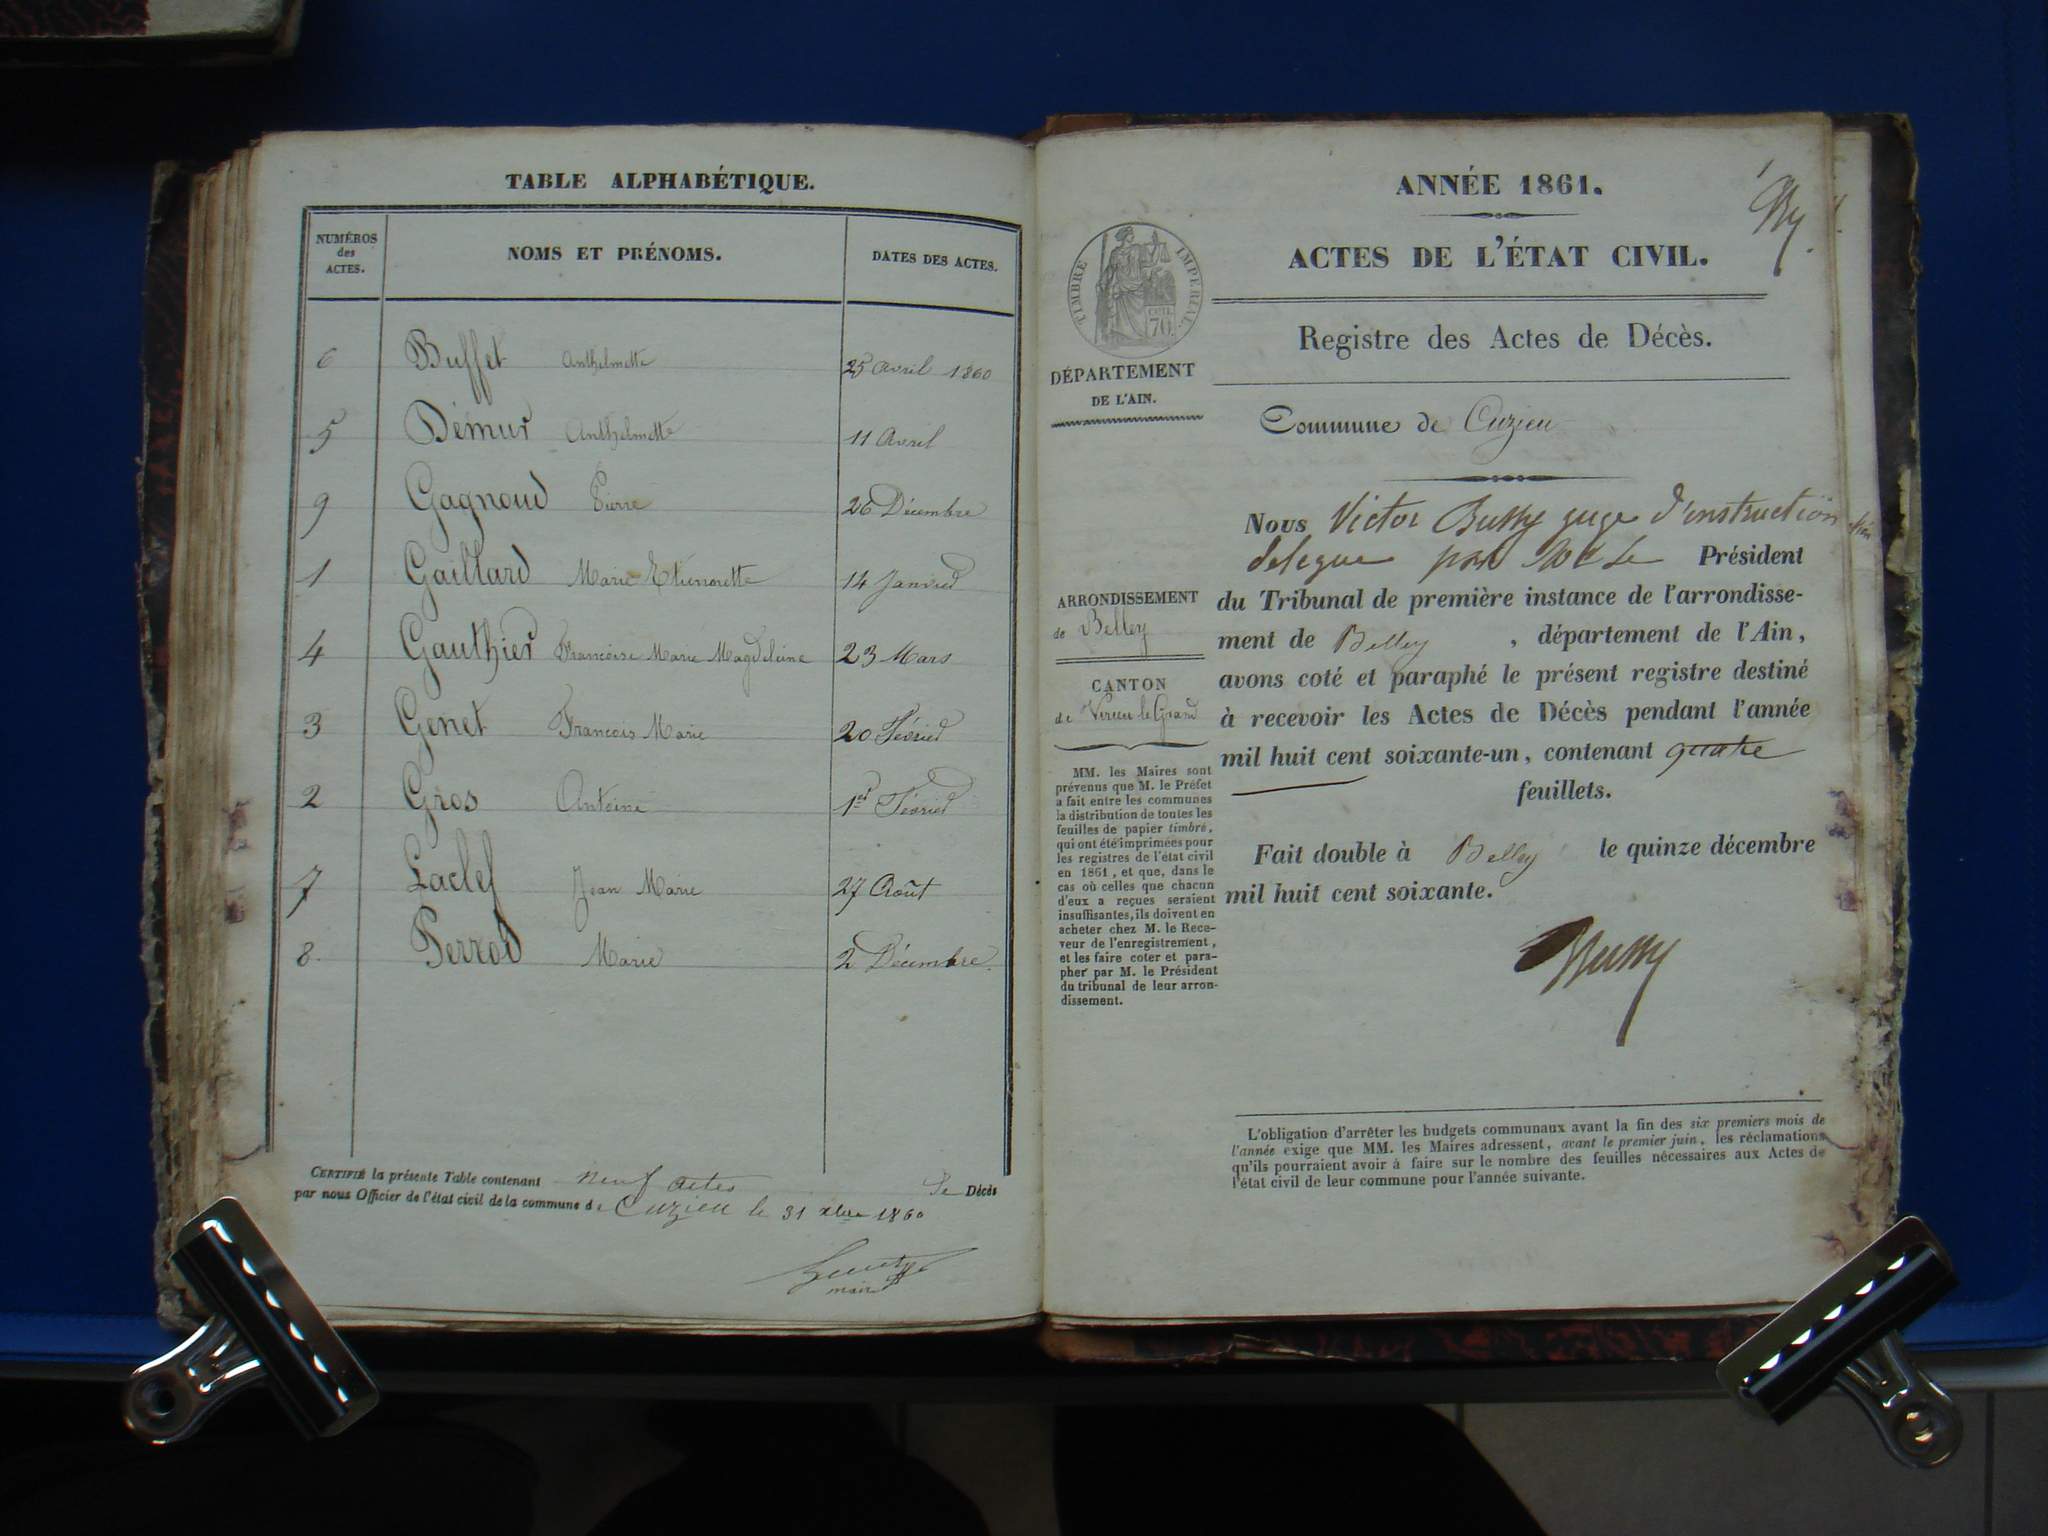 TABLE ALPHABÉTIQUE.
NUMÉROS
des
ACTES.
NOMS ET PRÉNOMS.
DATES DES ACTES.
6 Buffet Anthelmette 25 Avril 1860
5 Démur Anthelmette 11 Avril
9 Gagnoud Pierre 26 Décembre
1 Gaillard Marie Etiennette 14 Janvier
4 Gauthier Françoise Marie Magdeleine 23 Mars
3 Genet François Marie 20 Février
2 Gros Antoine 1er Février
7 Laclef Jean Marie 27 Août
8 Perrod Marie 2 Décembre.
CERTIFIÉ la présente Table contenant neuf actes de Décès
par nous Officier de l'état civil de la commune de Cuzieu le 31 xbre 1860
maire
ANNÉE 1861.
ACTES DE L'ÉTAT CIVIL.
Registre des Actes de Décès.
TIMBRE IMPÉRIAL.
70
DÉPARTEMENT
DE L'AIN.
Commune de Cuzieu
ARRONDISSEMENT
de Belley
CANTON
de Virieu le Grand
MM. les Maires sont
prévenus que M. le Préfet
a fait entre les communes
la distribution de toutes les
feuilles de papier timbré,
qui ont été imprimées pour
les registres de l'état civil
en 1861, et que, dans le
cas où celles que chacun
d'eux a reçues seraient
insuffisantes, ils doivent en
acheter chez M. le Rece-
veur de l'enregistrement,
et les faire coter et para-
pher par M. le Président
du tribunal de leur arron-
dissement.
Nous Victor Bussy juge d'instruction
delegue par Mr le Président
du Tribunal de première instance de l'arrondisse-
ment de Belley , département de l'Ain,
avons coté et paraphé le présent registre destiné
à recevoir les Actes de Décès pendant l'année
mil huit cent soixante-un, contenant quatre
feuillets.
Fait double à Belley le quinze décembre
mil huit cent soixante.
Bussy
L'obligation d'arrêter les budgets communaux avant la fin des six premiers mois de
l'année exige que MM. les Maires adressent, avant le premier juin, les réclamations
qu'ils pourraient avoir à faire sur le nombre des feuilles nécessaires aux Actes de
l'état civil de leur commune pour l'année suivante.